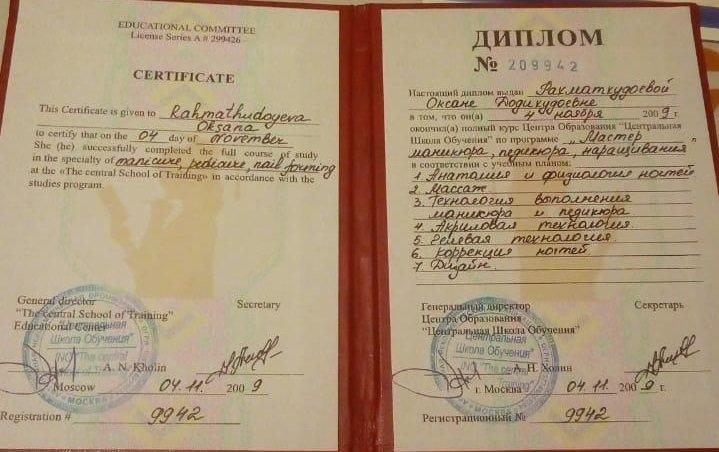 EDUCATIONAL COMMITTEE
License Series A # 299426
CERTIFICATE
This Certificate is given to Rahmathudoyeva
Oksana
to certify that on the 04 day of november
She (he) successfully completed the full course of study
in the specialty of manicure, pedicure, nail forming
at the «The central School of Training» in accordance with the
studies program.
General director
"The central School of Training"
Educational Center
Secretary
Центральная
Школа Обучения"
A. N. Kholin
Moscow
04.11. 2009
МОСКВА
Registration # 9942
ДИПЛОМ
№ 209942
Настоящий диплом выдан Рахматхудоевой
Оксане
в том, что он(а) 4 ноября 2009 г.
окончил(а) полный курс Центра Образования "Центральная
Школа Обучения" по программе "Мастер
маникюра, педикюра, наращивания"
в соответствии с учебным планом:
1. Анатомия и физиология ногтей
2. Массаж
3. Технология выполнения
маникюра и педикюра
4. Акриловая технология.
5. Гелевая технология.
6. Коррекция ногтей.
7. Дизайн.
Генеральный директор
Центра Образования
"Центральная Школа Обучения"
Секретарь
Центральная
Школа Обучения"
А. Н. Холин
г. Москва
04.11. 2009 г.
МОСКВА
Регистрационный № 9942